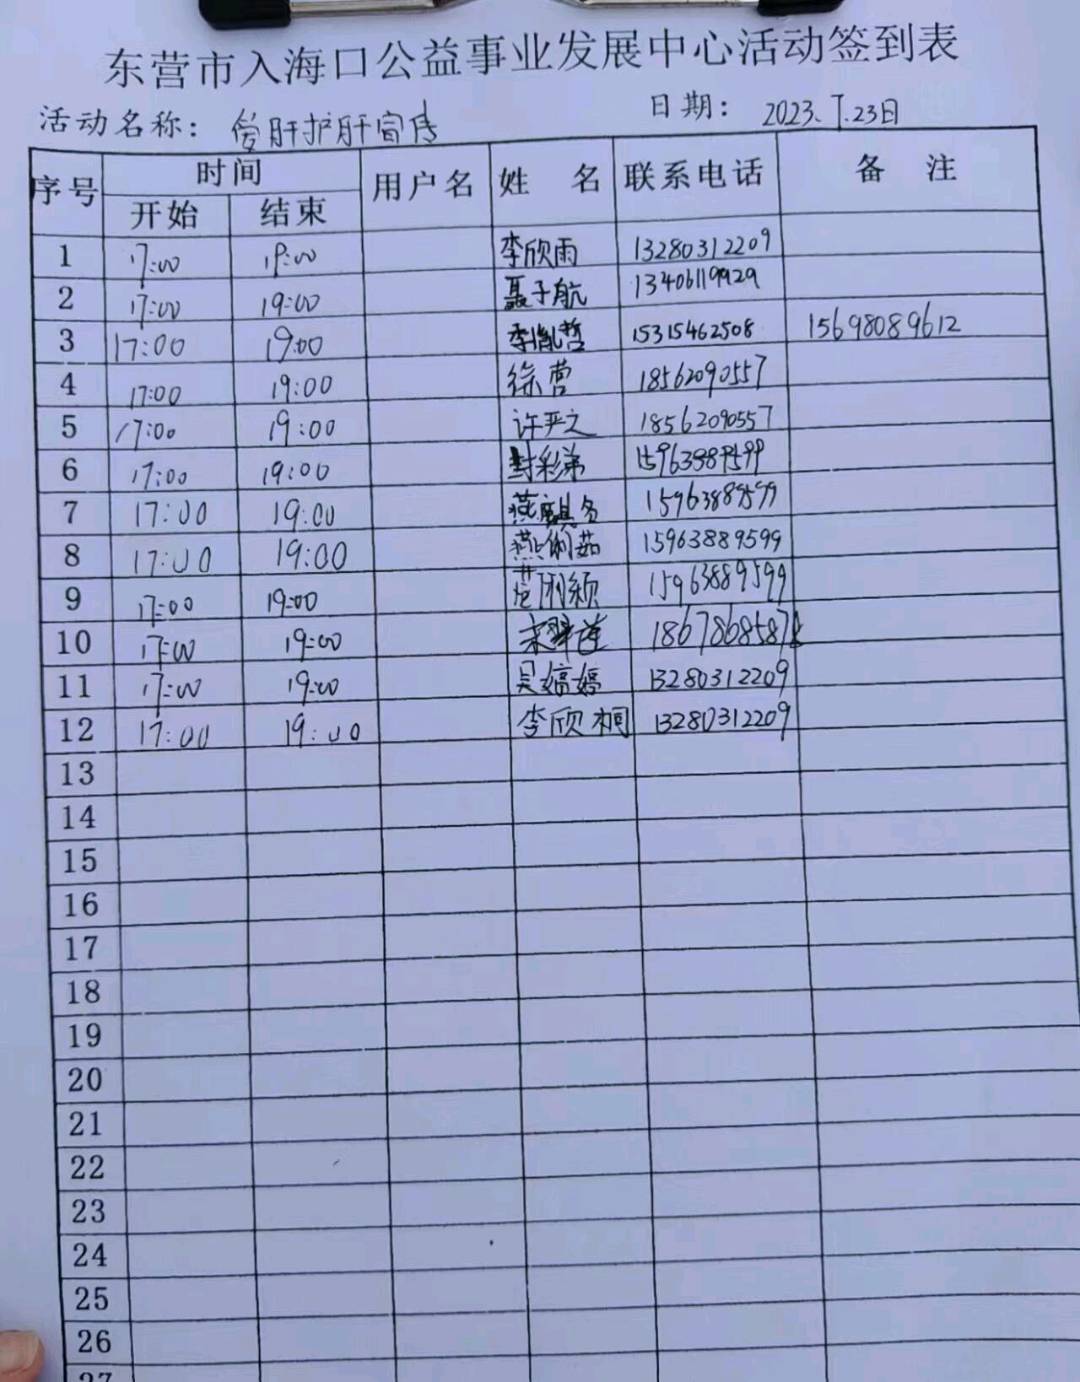 东营市入海口公益事业发展中心活动签到表
活动名称：爱肝护肝宣传 日期：2023.7.23日
序号 时间 用户名 姓 名 联系电话 备 注
开始 结束
1 17:00 19:00 李欣雨 13280312209
2 17:00 19:00 聂子航 13406119929
3 17:00 19:00 李胤哲 15315462508 15698089612
4 17:00 19:00 徐营 18562090557
5 17:00 19:00 许严之 18562090557
6 17:00 19:00 封彩弟 15963889599
7 17:00 19:00 15963889599
8 17:00 19:00 燕俐茹 15963889599
9 17:00 19:00 15963889599
10 17:00 19:00
11 17:00 19:00 吴婷婷 13280312209
12 17:00 19:00 李欣桐 13280312209
13
14
15
16
17
18
19
20
21
22
23
24
25
26
27